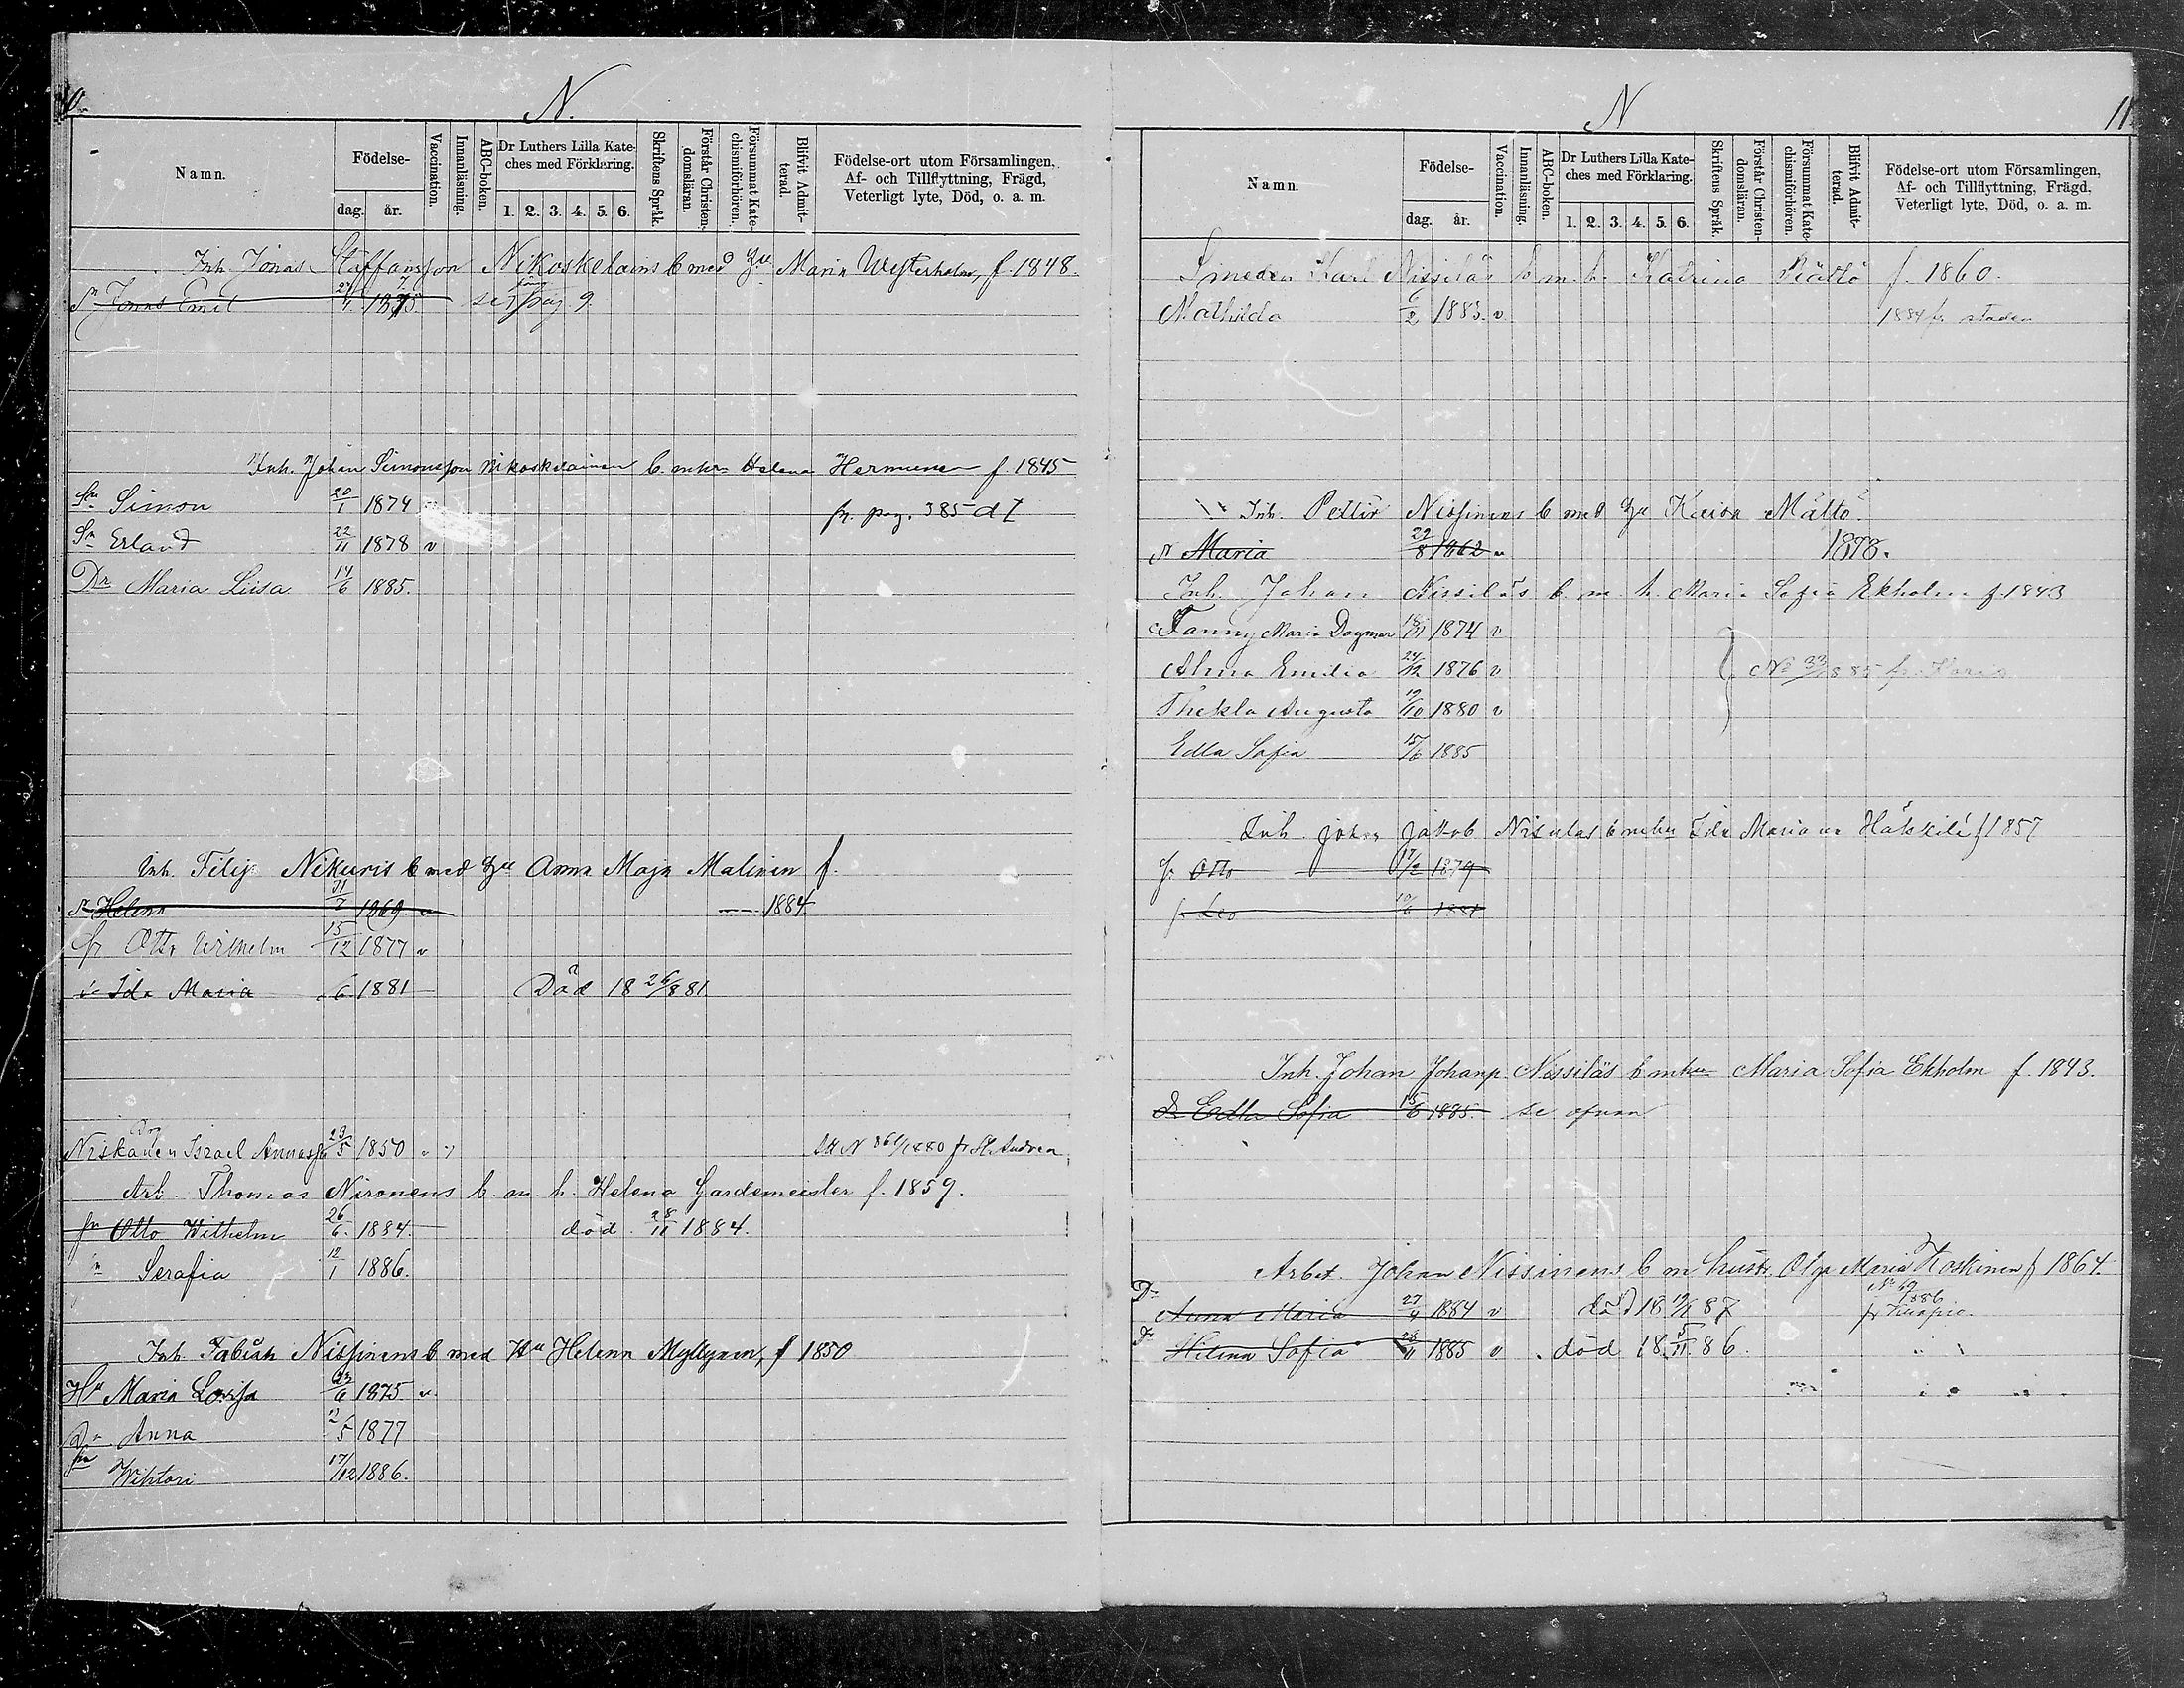 10.
N.
Namn.
Födelse-
dag.
år.
Vaccination.
Innanläsning.
ABC-boken.
Dr Luthers Lilla Kate-
ches med Förklaring.
1. 2. 3. 4. 5. 6.
Skriftens Språk.
Förstår Christen-
domsläran.
Försummat Kate-
chismiförhören.
Blifvit Admit-
terad.
Födelse-ort utom Församlingen,
Af- och Tillflyttning, Frägd,
Veterligt lyte, Död, o. a. m.
Inh. Jonas Staffansson Nikoskelains b med Hu Maria Westerholm, f. 1848.
Sn Jonas Emil 1875 se pag. 9.
Inh. Johan Simonsson Nikoskelainen b. m hu Helena Hermunen f 1845
Sn Simon 20/1 1874 fr. pag. 385 d I
Sn Erland 22/11 1878 v
Dr Maria Liisa 14/6 1885.
Inh. Filip Nikuris b med Hu Anna Maja Malinen f.
Helena 1869 v 1884.
Otto Wilhelm 15/12 1877 v
Ida Maria 6 1881 Död 18 26/8 81
Niskanen Israel Annasp 23/5 1850 v Att N 861/1880 fr St. Andrea
Arb. Thomas Nironens b. m. h. Helena Gardemeister f. 1859.
Otto Wilhelm 26/6 1884. död 28/11 1884.
Serafia 12/1 1886.
Inh. Fabian Nissinens b med Hu Helena Myllynen, f 1850
Maria Lovisa 23/6 1875 v.
Anna 5 1877
Wiktori 17/12 1886.
N
11.
Namn.
Födelse-
dag.
år.
Vaccination.
Innanläsning.
ABC-boken.
Dr Luthers Lilla Kate-
ches med Förklaring.
1. 2. 3. 4. 5. 6.
Skriftens Språk.
Förstår Christen-
domsläran.
Försummat Kate-
chismiförhören.
Blifvit Admit-
terad.
Födelse-ort utom Församlingen,
Af- och Tillflyttning, Frägd,
Veterligt lyte, Död, o. a. m.
Smeden Karl Nissiläs b. m. h. Katrina Rättö f. 1860.
Mathilda 6/2 1883. v 1884 fr staden
Inh. Petter Nissinens b med Hu Kaisa Mältö
Maria 22/8 1862 v 1878.
Inh. Johan Nissiläs b. m. h. Maria Sofia Ekholm f. 1843
Fanny Maria Dagmar 1874 v
Alma Emilia 24/12 1876 v No 33/1885 fr. Karis
Thekla Augusta 19/10 1880 v
Edla Sofia 15/6 1885
Inh. Johan Jakob Nisulas b m hu Ida Maria Häkkili f 1857
Otto 17/2 1879
Leo 10/6 1881
Inh. Johan Johansp. Nissiläs b m hu Maria Sofia Ekholm f. 1843.
D. Edla Sofia 15/6 1885. se ofvan
Arbet. Johan Nissinens b m hustr Olga Maria Koskinen f 1864.
Dr Anna Maria 27/4 1884 v död 18 19/1 87 No 69/1886 fr Kuopio.
Dr Helena Sofia 1885 v död 18 5/11 86. "